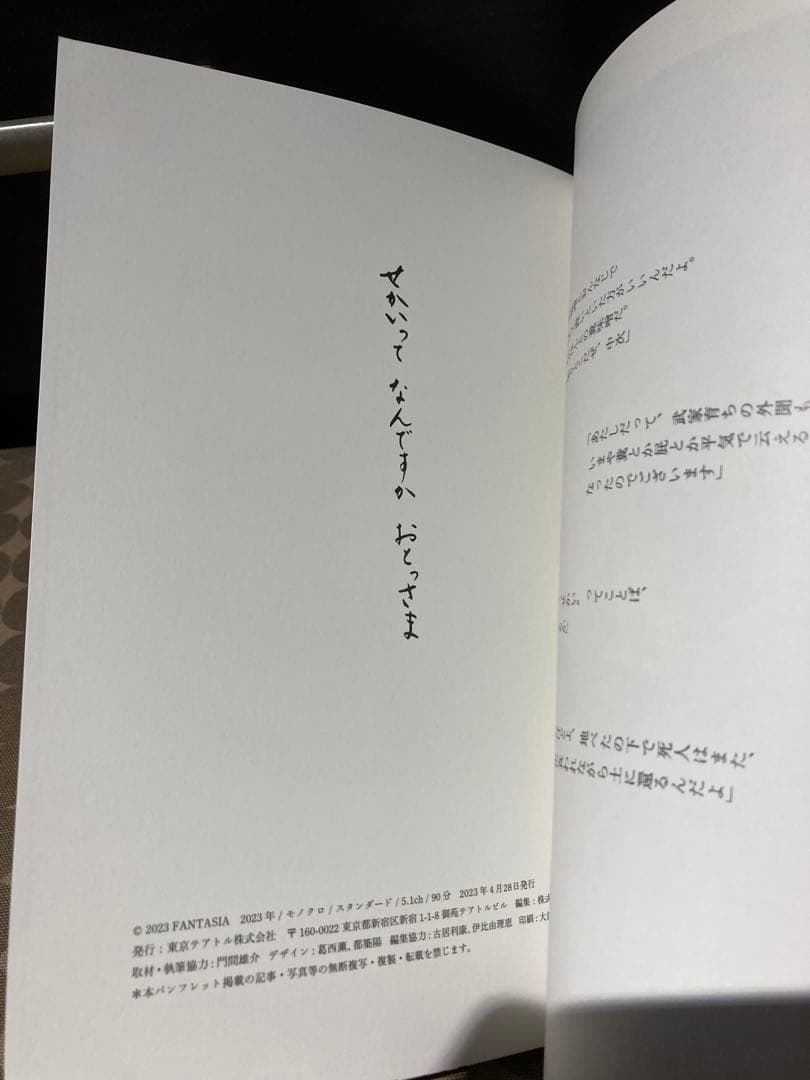 せかいって なんですか おとっさま
© 2023 FANTASIA 2023年 / モノクロ / スタンダード / 5.1ch / 90分 2023年4月28日発行
発行：東京テアトル株式会社 〒160-0022 東京都新宿区新宿1-1-8 御苑テアトルビル 編集：株式
取材・執筆協力：門間雄介 デザイン：葛西薫、都築陽 編集協力：古居利康、伊比由理恵 印刷：大
＊本パンフレット掲載の記事・写真等の無断複写・複製・転載を禁じます。
方がいいんだよ。
「あたしだって、武家育ちの外聞も
いまや糞とか屁とか平気で云える
なったのでございます」
ってことば、
地べたの下で死人はまた、
われながら土に還るんだよ」